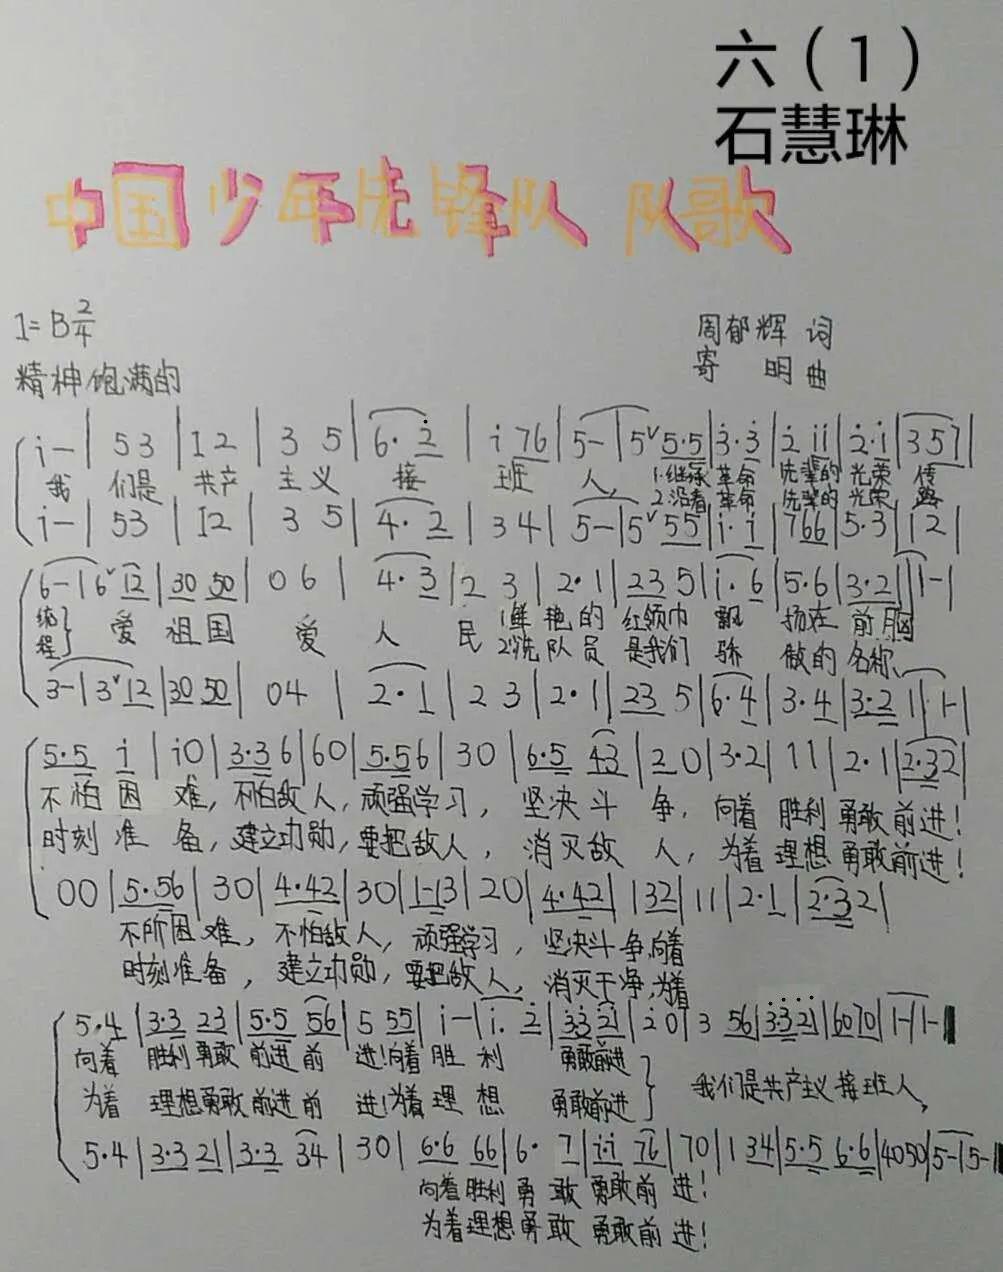 六（1）
石慧琳
中国少年先锋队 队歌
1=B 2/4
周郁辉 词
精神饱满的
寄 明 曲
i - | 5 3 | 1 2 | 3 5 | 6· 2 | i 76 | 5 - | 5ˇ 5·5 | 3·3 | 2 ii | 2·i | 3 5 7 |
我 们是 共产 主义 接 班 人, 1.继承 革命 先辈的 光荣 传
2.沿着 革命 先辈的 光荣 路
i - | 53 | 12 | 3 5 | 4· 2 | 3 4 | 5 - | 5ˇ 55 | i·i | 7 66 | 5·3 | 1 2 |
6 - | 6ˇ 12 | 30 50 | 0 6 | 4· 3 | 2 3 | 2· 1 | 23 5 | i· 6 | 5·6 | 3·2 | 1 - |
统 爱 祖国 爱 人 民 1鲜 艳的 红领巾 飘 扬在 前胸
程 队员 是我们 骄 傲的 名称
3 - | 3ˇ 12 | 30 50 | 04 | 2· 1 | 2 3 | 2· 1 | 23 5 | 6·4 | 3·4 | 3·2 1 | 1 - |
5·5 i | i0 | 3·3 6 | 60 | 5·5 6 | 30 | 6·5 43 | 2 0 | 3·2 | 1 1 | 2·1 | 2·32 |
不怕困 难, 不怕敌人, 顽强学习, 坚决斗 争, 向着 胜利 勇敢前进!
时刻准 备, 建立功勋, 要把敌人, 消灭敌 人, 为着 理想 勇敢前进!
00 | 5·56 | 30 | 4·42 | 30 | 1-13 | 20 | 4·42 | 132 | 11 | 2·1 | 2·32 |
不所困难, 不怕敌人, 顽强学习, 坚决斗争,向着
时刻准备, 建立功勋, 要把敌人, 消灭干净,为着
5·4 | 3·3 23 | 5·5 56 | 5 55 | i - | i· 2 | 33 21 | 2 0 | 3 56 | 3·3 21 | 6070 | 1 - | 1 - ‖
向着 胜利勇敢 前进前 进!向着 胜 利 勇敢前进
我们是共产主义接班人,
为着 理想勇敢 前进前 进!为着 理 想 勇敢前进
5·4 | 3·3 21 | 3·3 34 | 30 | 6·6 66 | 6· 7 | i·i 76 | 70 | 1 34 | 5·5 6·6 | 4050 | 5 - | 5 - ‖
向着胜利勇 敢 勇敢前 进!
为着理想勇敢 勇敢前 进!